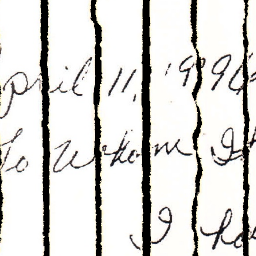 pril 11, 1996
To Whome It
I ha